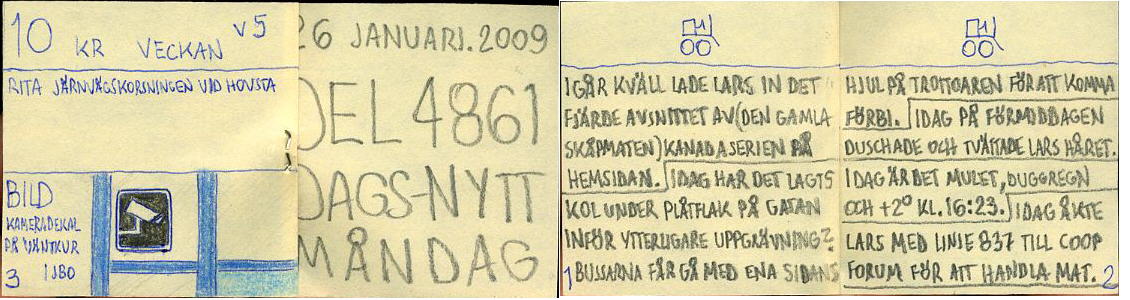 10 KR VECKAN V5
RITA JÄRNVÄGSKORSNINGEN VID HOVSTA
BILD
KAMERADEKAL
PÅ VÄNTKUR
I JBO
3
26 JANUARI.2009
DEL 4861
DAGS-NYTT
MÅNDAG
IGÅR KVÄLL LADE LARS IN DET
FJÄRDE AVSNITTET AV(DEN GAMLA
SKÅPMATEN)KANADASERIEN PÅ
HEMSIDAN. IDAG HAR DET LAGTS
KOL UNDER PLÅTFLAK PÅ GATAN
INFÖR YTTERLIGARE UPPGRÄVNING?
BUSSARNA FÅR GÅ MED ENA SIDANS
1
HJUL PÅ TROTTOAREN FÖR ATT KOMMA
FÖRBI. IDAG PÅ FÖRMIDDAGEN
DUSCHADE OCH TVÄTTADE LARS HÅRET.
IDAG ÄR DET MULET, DUGGREGN
OCH +2° KL.16:23. IDAG ÅKTE
LARS MED LINJE 837 TILL COOP
FORUM FÖR ATT HANDLA MAT.
2